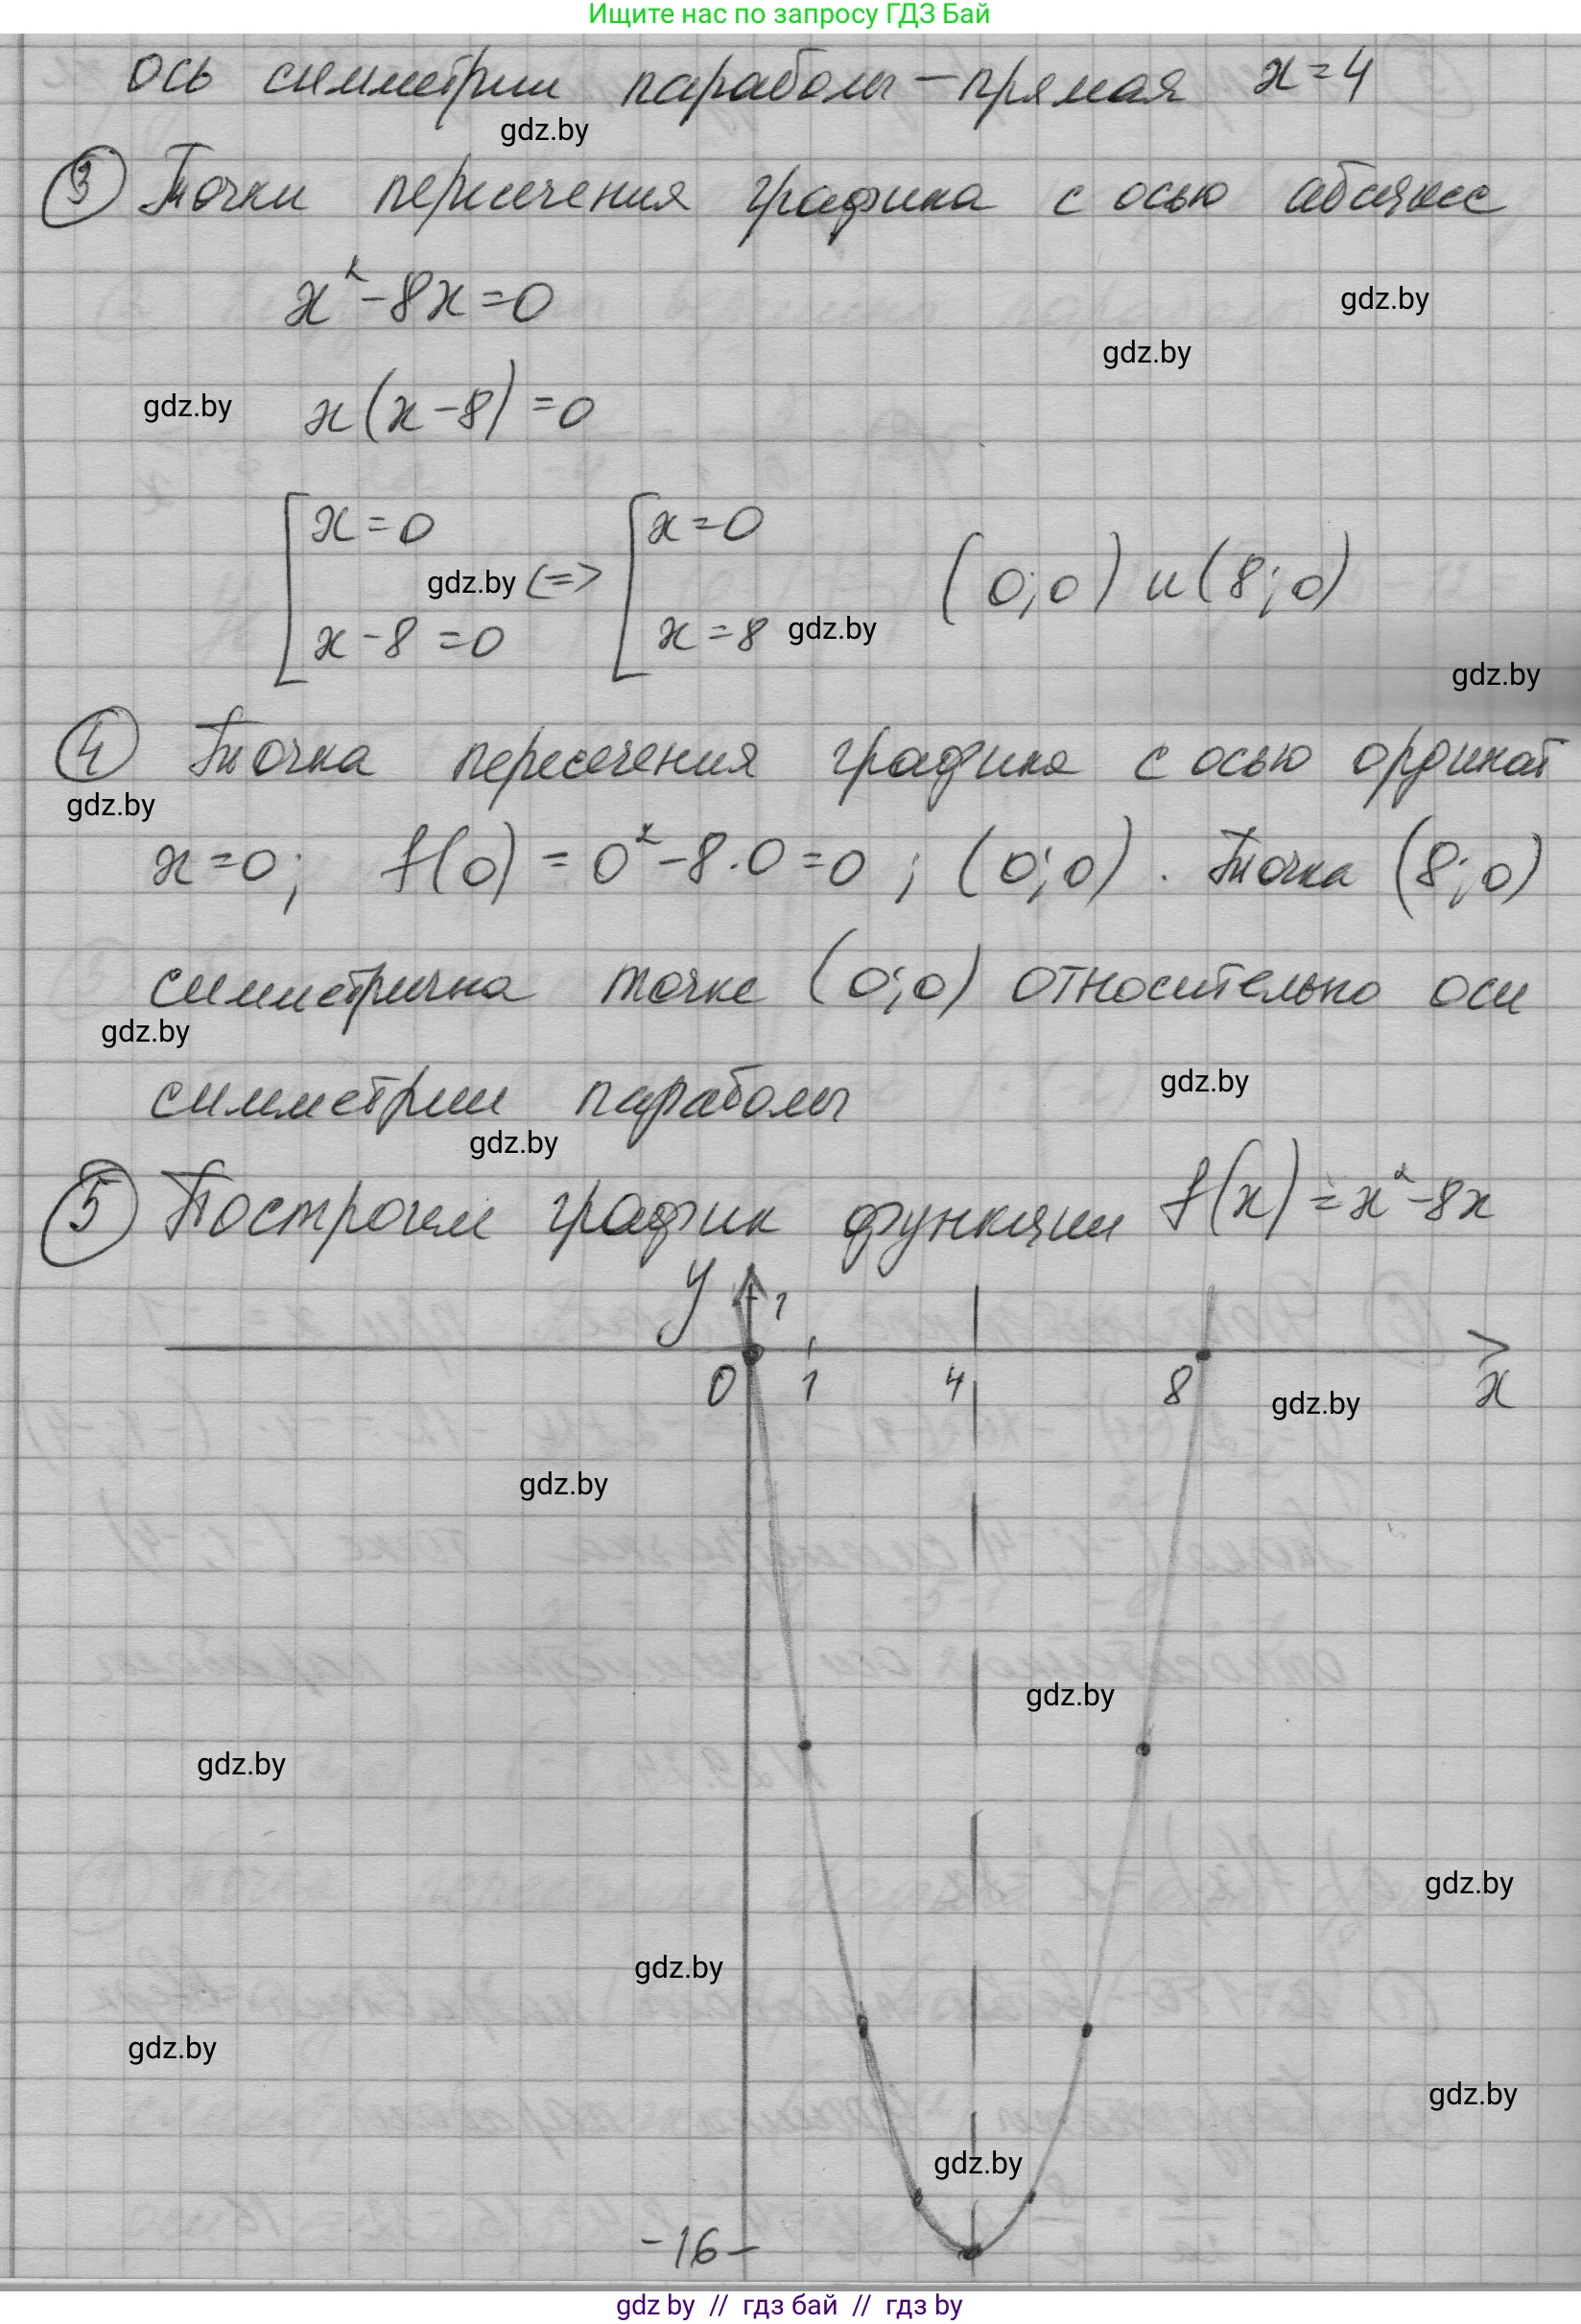 Ищите нас по запросу ГДЗ Бай
ось симметрии параболы – прямая x=4
gdz.by
③ Точки пересечения графика с осью абсцисс
x²-8x=0
gdz.by
gdz.by
gdz.by
x(x-8)=0
[x=0 [x=0
gdz.by <=> (0;0) и (8;0)
x-8=0 x=8 gdz.by
gdz.by
④ Точка пересечения графика с осью ординат
gdz.by
x=0; f(0)=0²-8·0=0; (0;0). Точка (8;0)
симметрична точке (0;0) относительно оси
gdz.by
gdz.by
симметрии параболы
gdz.by
⑤ Построим график функции f(x)=x²-8x
y 1
0 1 4 8 x
gdz.by
gdz.by
gdz.by
gdz.by
gdz.by
gdz.by
gdz.by
gdz.by
gdz.by
-16
gdz.by // гдз бай // гдз by